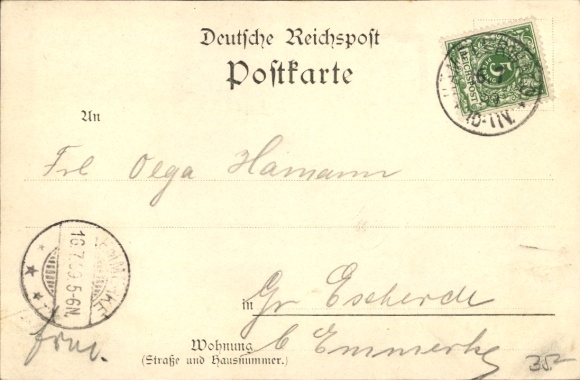 Deutsche Reichspost
Postkarte
REICHSPOST
5
An
Frl Olga Hamann
16.7.99 5-6N.
in Gr Escherde
Wohnung b Emmerke
(Straße und Hausnummer.)
35.-